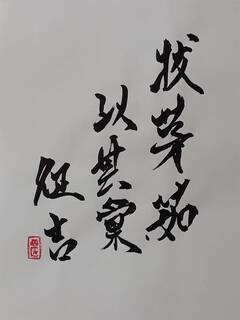 拔茅茹
以其彙
征吉